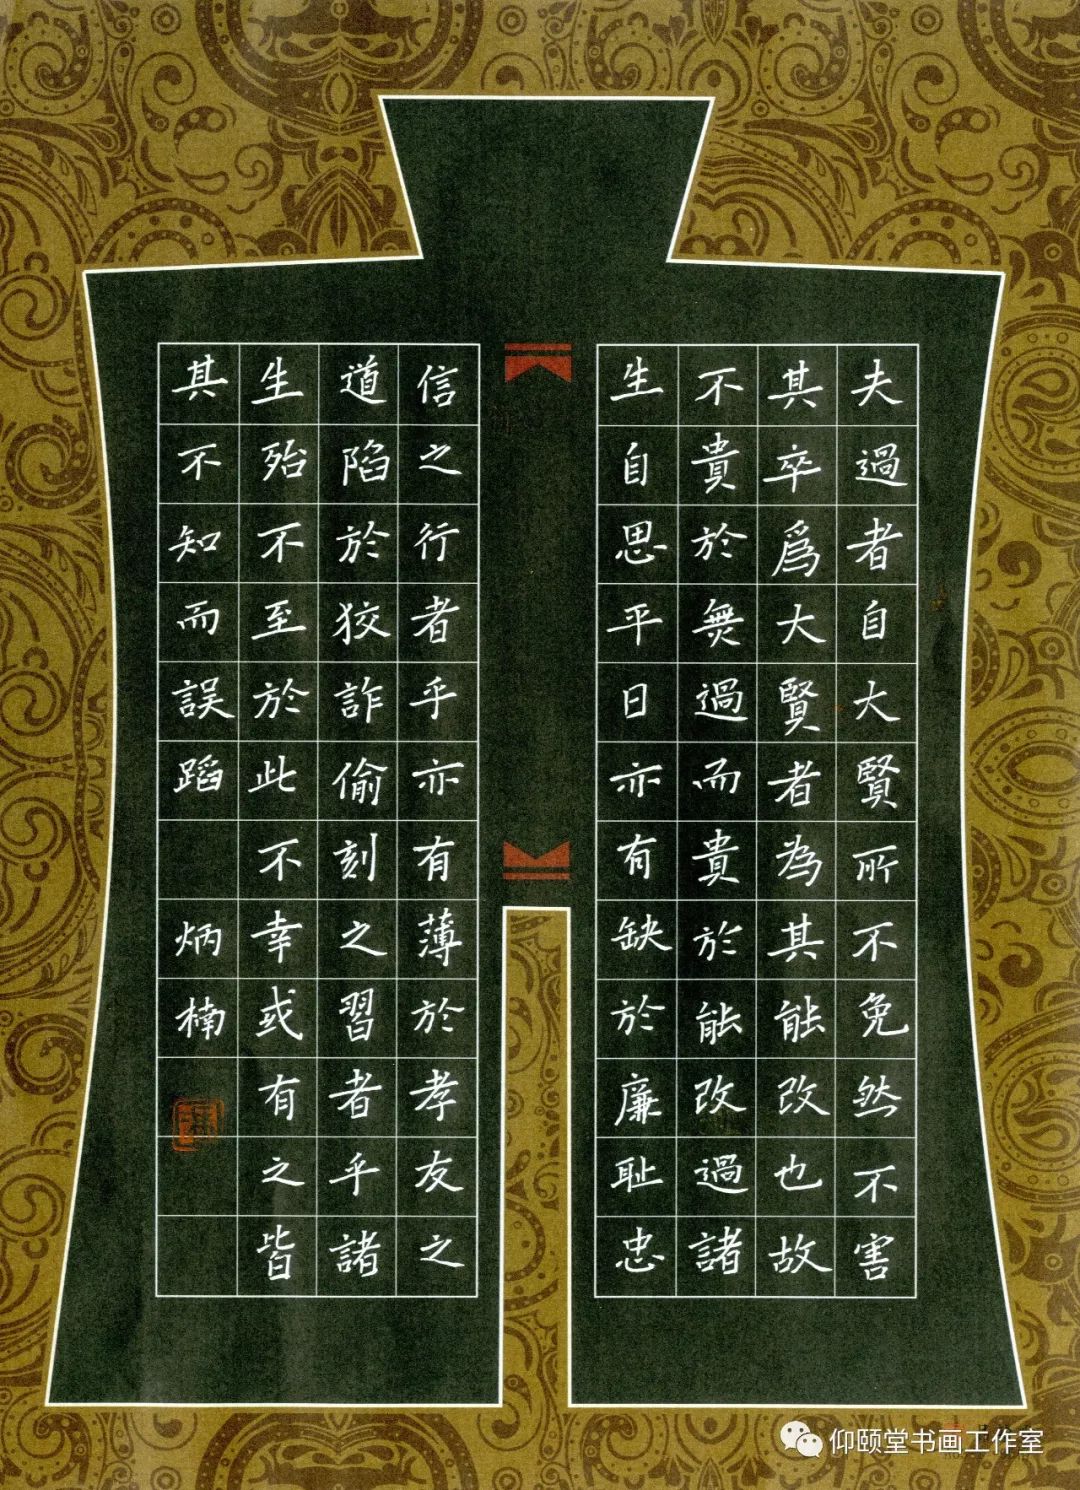 夫過者自大賢所不免然不害
其卒爲大賢者為其能改也故
不貴於無過而貴於能改過諸
生自思平日亦有缺於廉恥忠
信之行者乎亦有薄於孝友之
道陷於狡詐偷刻之習者乎諸
生殆不至於此不幸或有之皆
其不知而誤蹈
炳楠
仰颐堂书画工作室